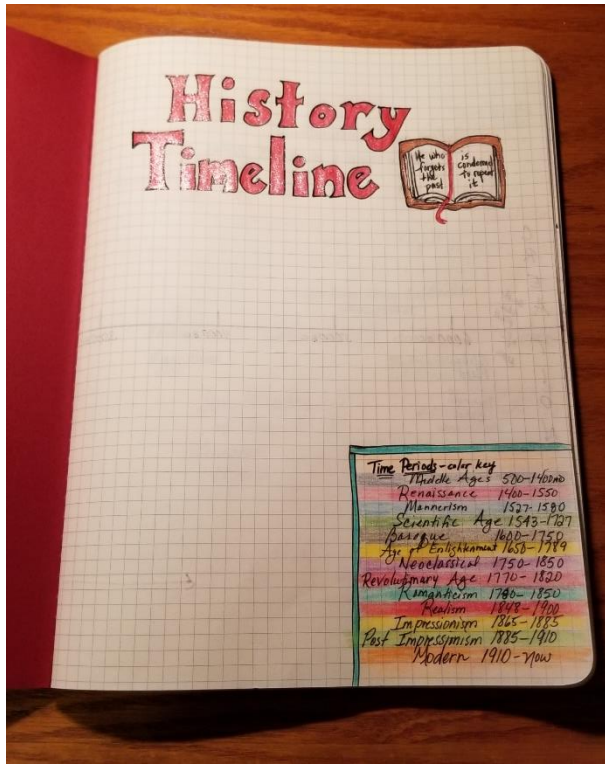 History
Timeline
He who
forgets
the
past
is
condemned
to repeat
it
Time Periods - color key
Middle Ages 500-1400AD
Renaissance 1400-1550
Mannerism 1527-1580
Scientific Age 1543-1727
Baroque 1600-1750
Age of Enlightenment 1650-1789
Neoclassical 1750-1850
Revolutionary Age 1770-1820
Romanticism 1780-1850
Realism 1848-1900
Impressionism 1865-1885
Post Impressionism 1885-1910
Modern 1910-now